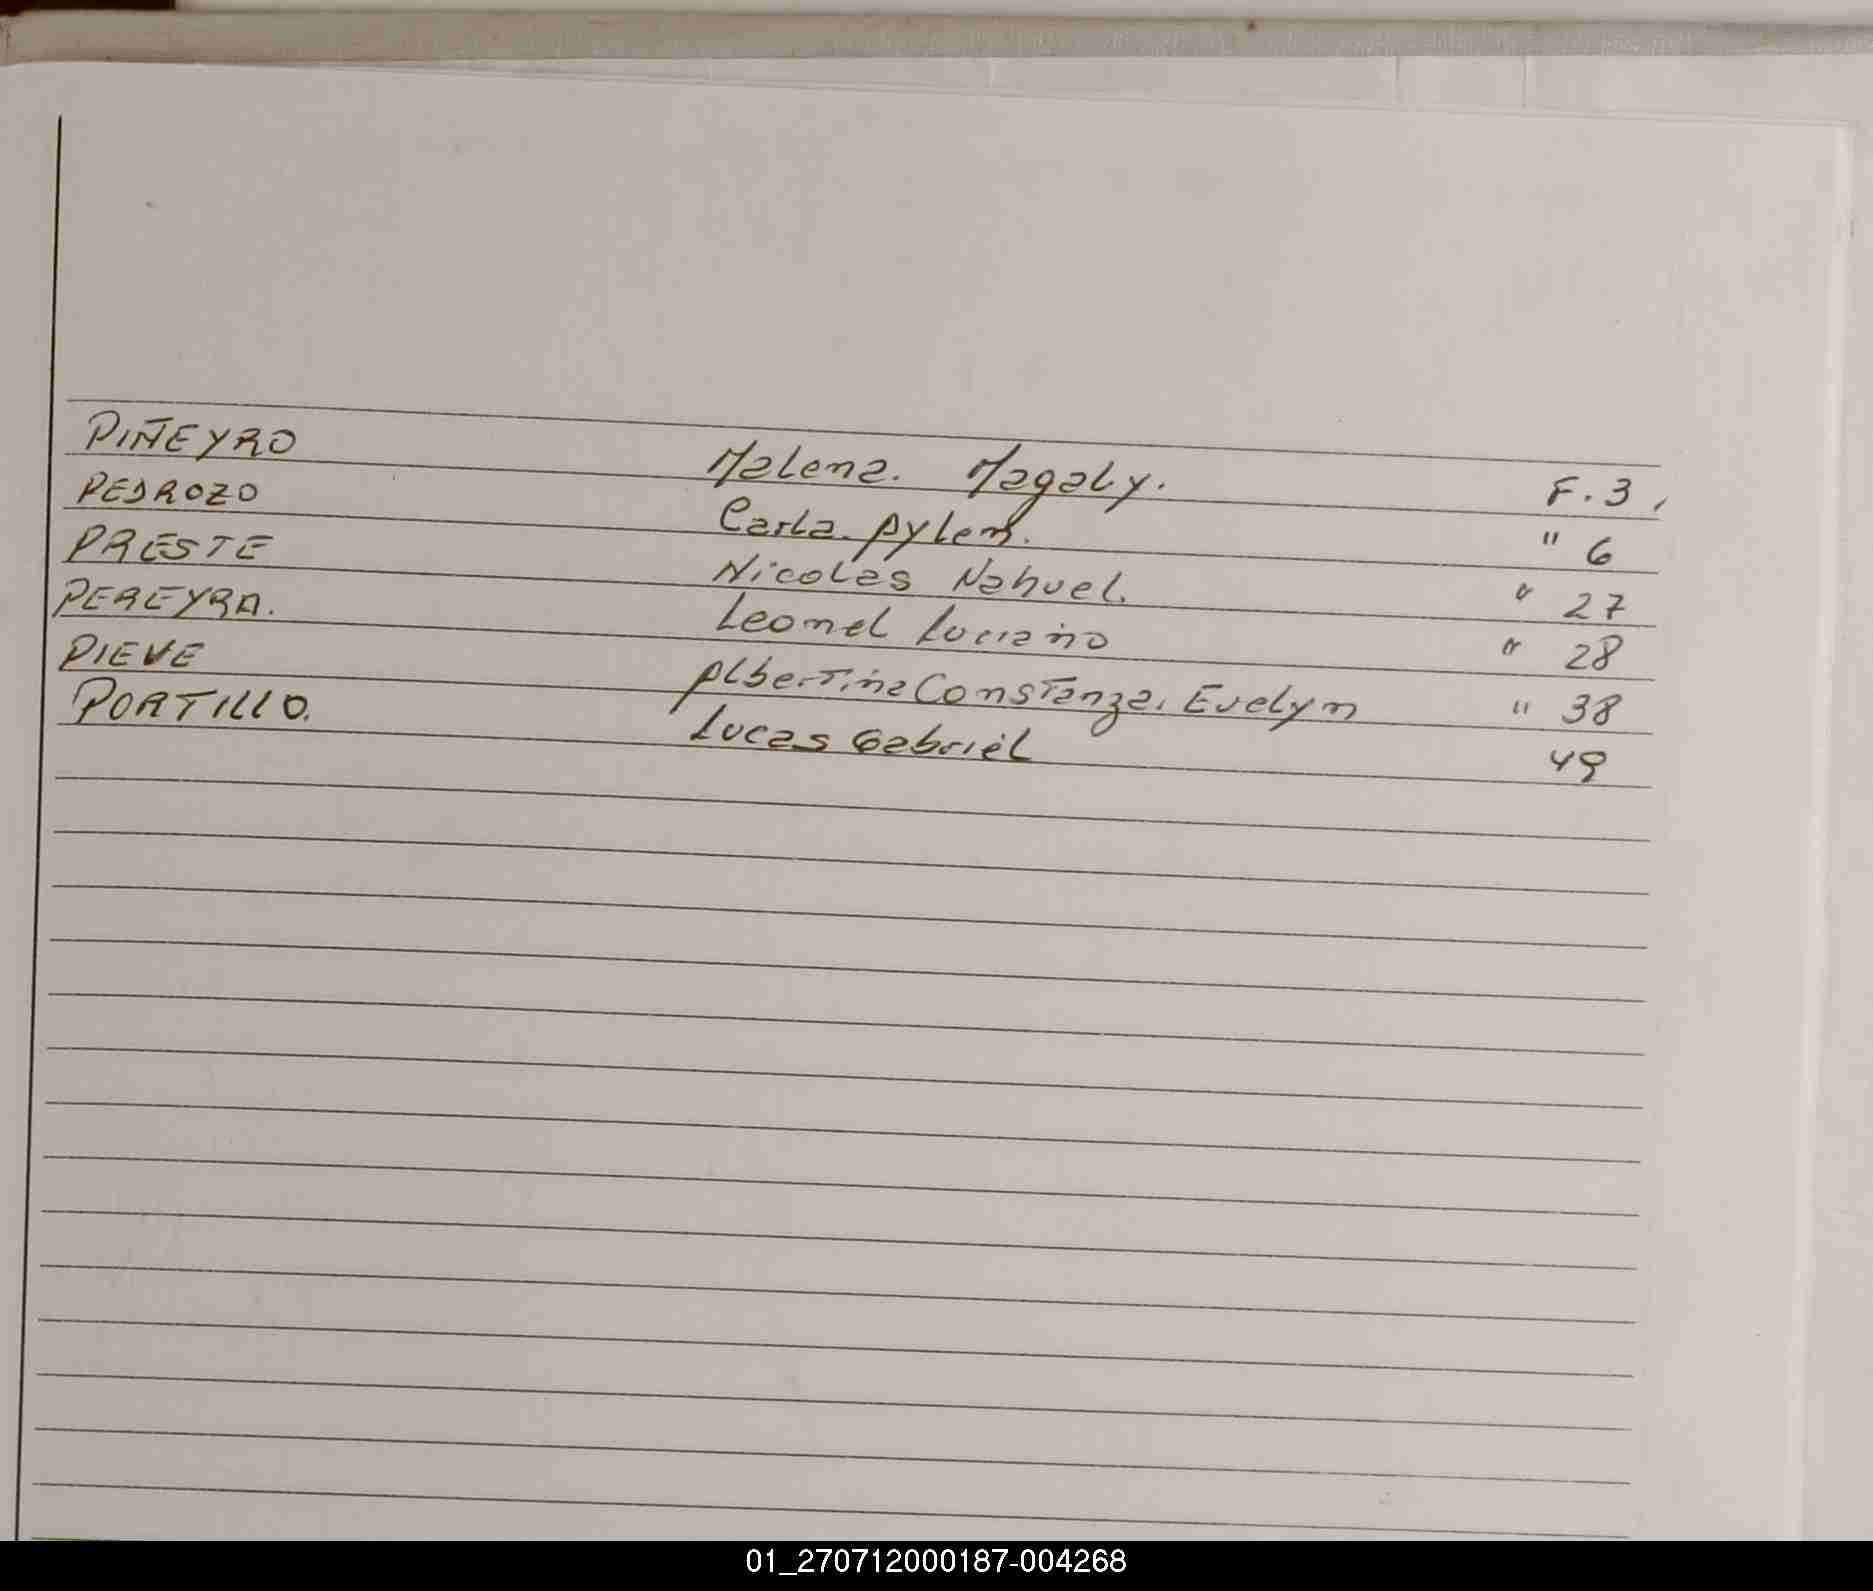 PIÑEYRO Malena. Magaly. F. 3,
PEDROZO Carla. Aylem. " 6
PRESTE Nicolas Nahuel. " 27
PEREYRA. Leonel Luciano " 28
PIEVE Albertina Constanza. Evelyn " 38
PORTILLO. Lucas Gabriel 49
01_270712000187-004268